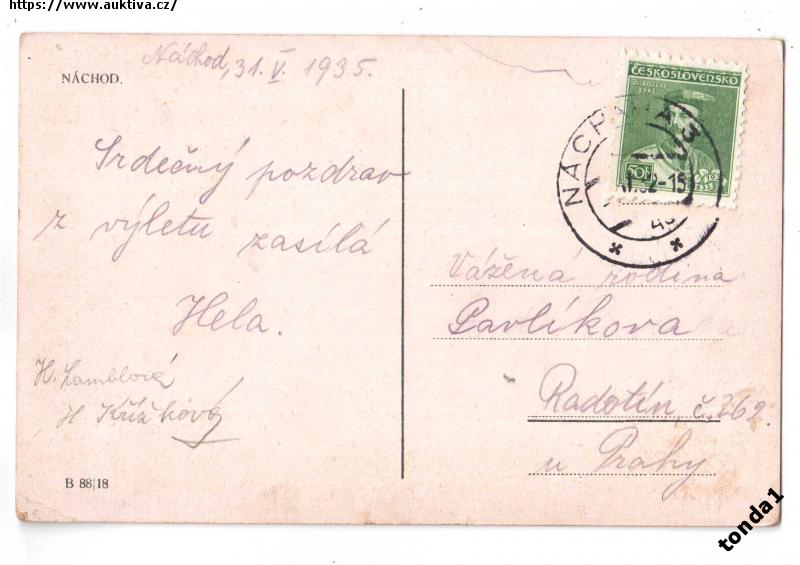 https://www.auktiva.cz/
NÁCHOD.
Náchod, 31. V. 1935.
Srdečný pozdrav
z výletu zasílá
Hela.
H. Lamblová
H. Křížková
B 88|18
ČESKOSLOVENSKO
MIROSLAV
TYRŠ
50h
Vážená rodina
Pavlíkova
Radotín, č. 262.
u Prahy
tonda1